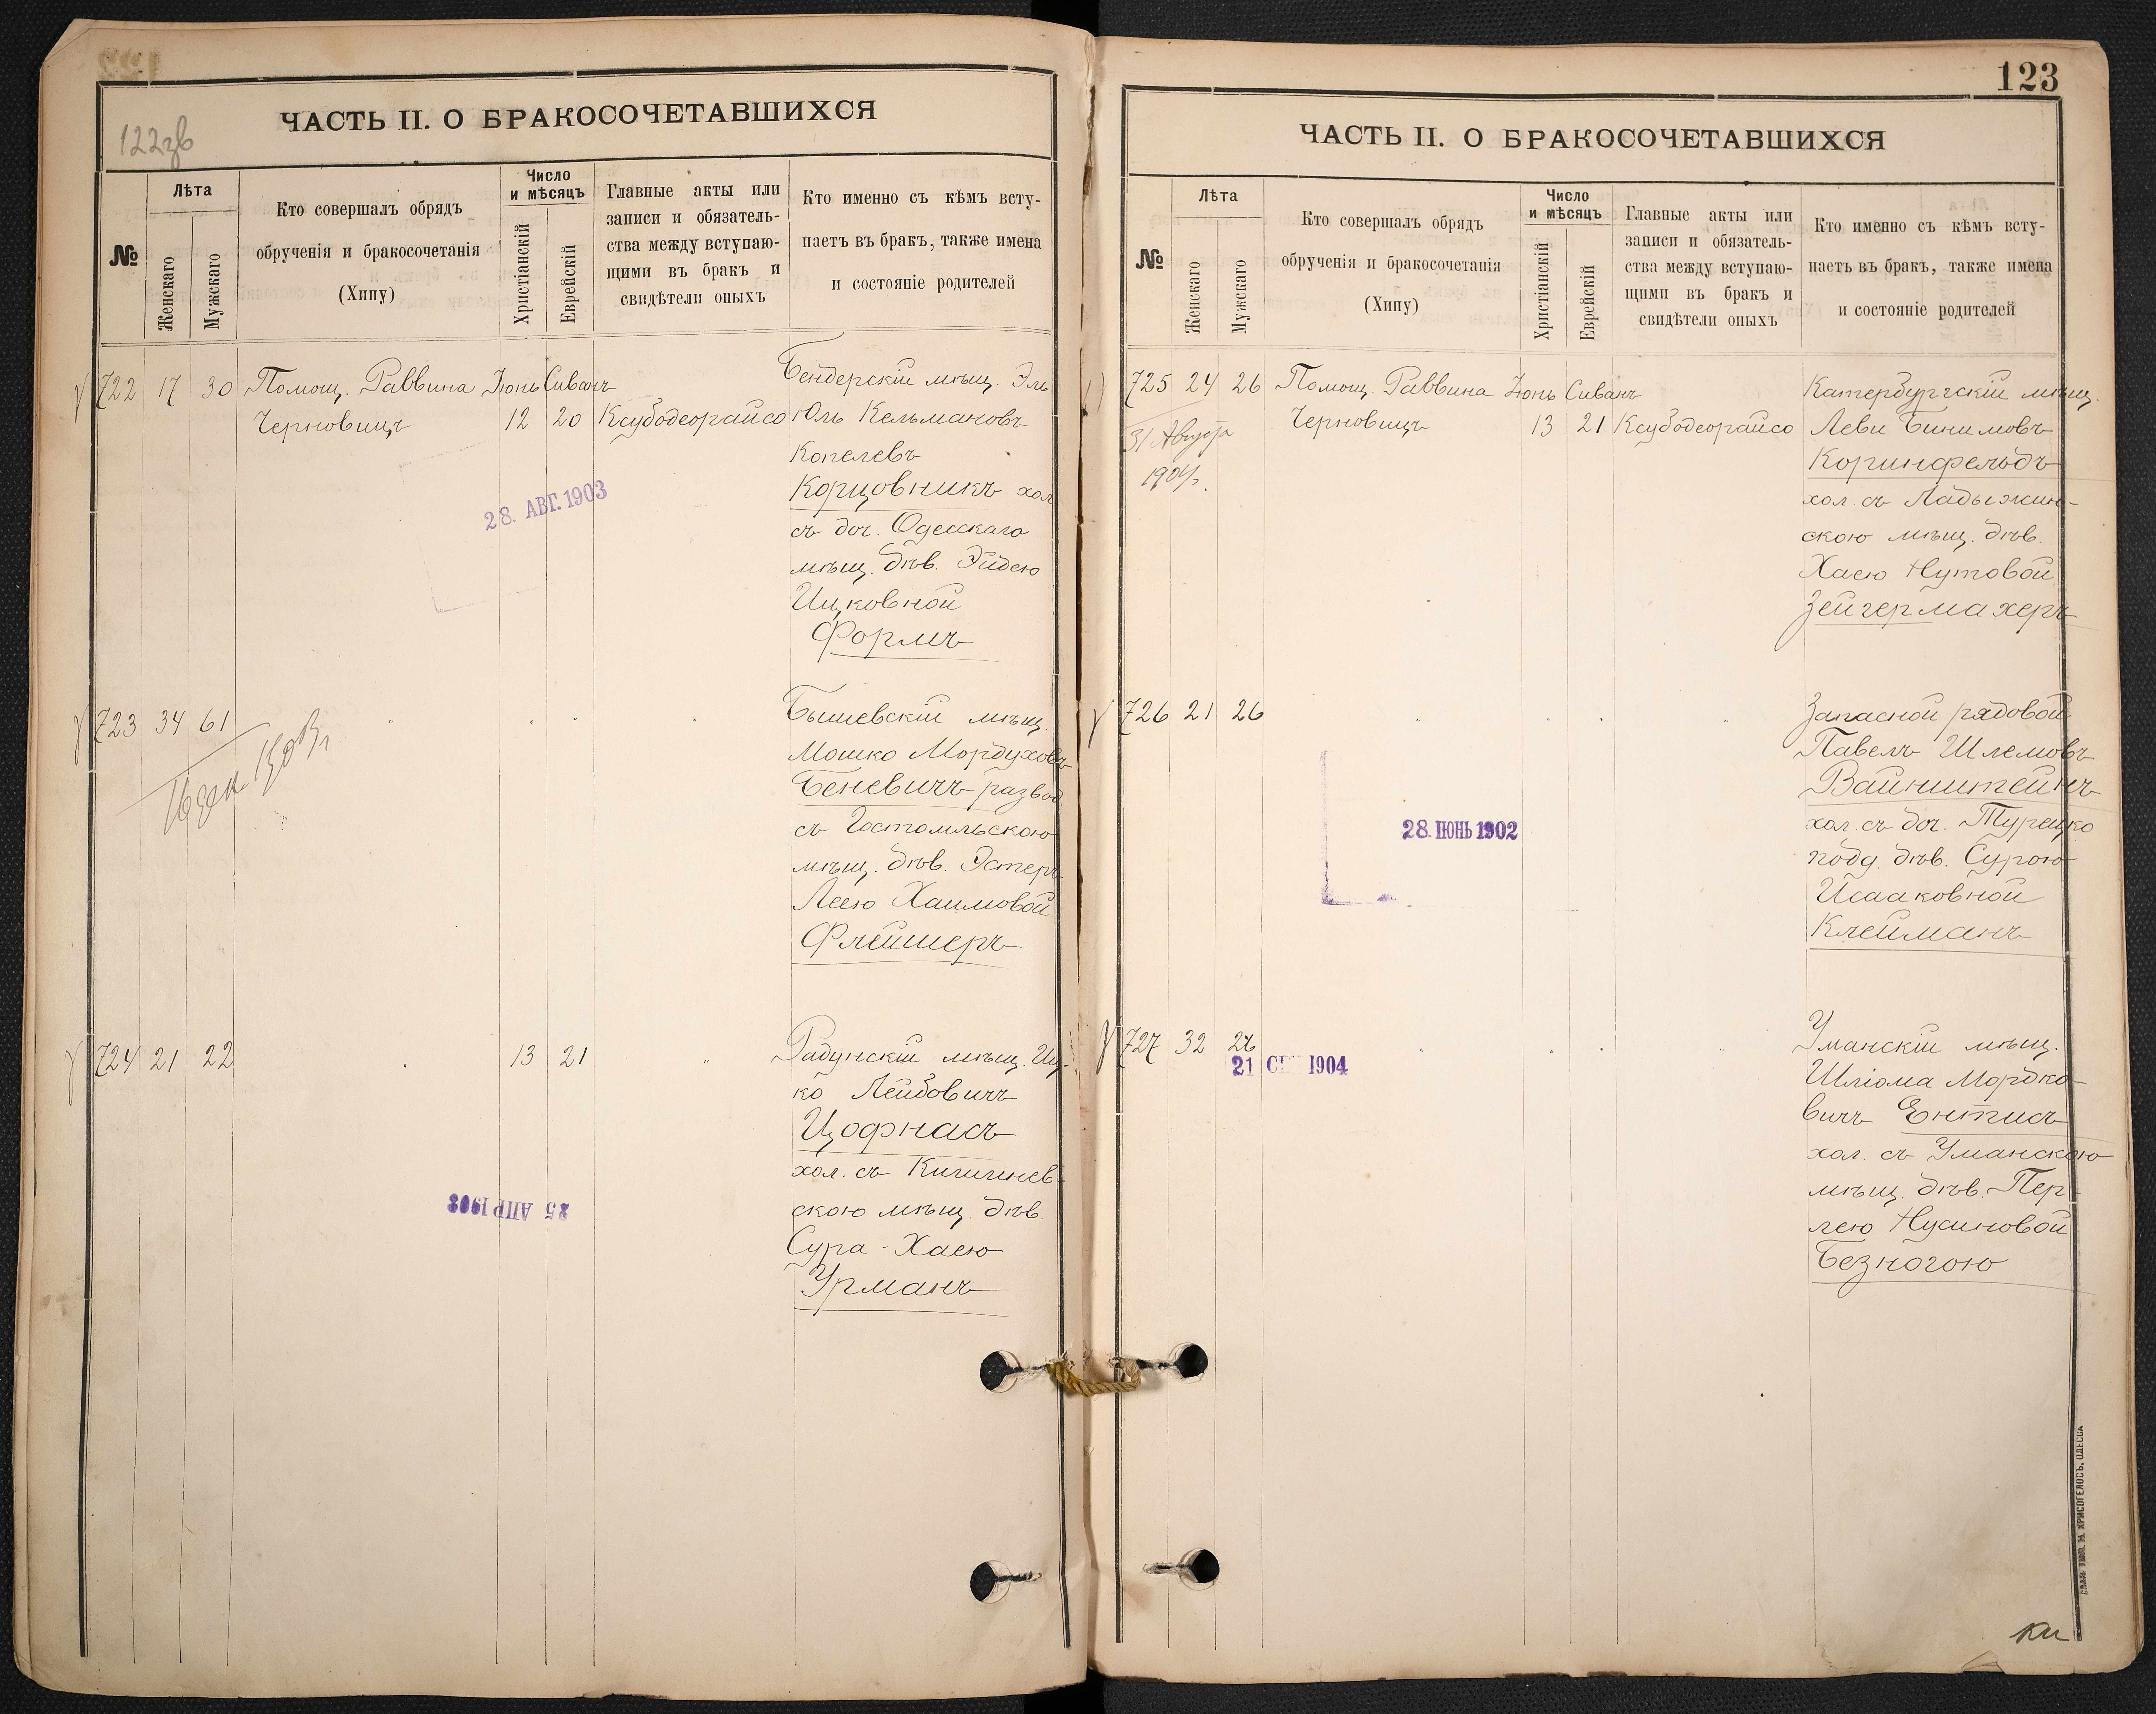 122зв
ЧАСТЬ II. О БРАКОСОЧЕТАВШИХСЯ
№
Лѣта
Женскаго
Мужскаго
Кто совершалъ обрядъ
обрученія и бракосочетанія
(Хипу)
Число
и мѣсяцъ
Христіанскій
Еврейскій
Главные акты или
записи и обязатель-
ства между вступаю-
щими въ бракъ и
свидѣтели оныхъ
Кто именно съ кѣмъ всту-
паетъ въ бракъ, также имена
и состояніе родителей
722 17 30 Помощ. Раввина Іюнь Сиванъ
Черновицъ 12 20 Ксубодеорайсо
Бендерскій мѣщ. Эль
Юль Кельмановъ
Копелевъ
Корцовникъ хол
съ доч. Одесскаго
мѣщ. дѣв. Эйдею
Ицковной
Формъ
28. АВГ. 1903
723 34 61
Бышевскій мѣщ.
Мошко Мордуховъ
Беневичъ развод
съ Гостомльскою
мѣщ. дѣв. Эстеръ
Леею Хаимовой
Флейшеръ
724 21 22 13 21
Радунскій мѣщ. Иц-
ко Лейбовичъ
Цофнасъ
хол. съ Кишинев-
скою мѣщ. дѣв.
Сура-Хаею
Урманъ
25 АПР 1903
123
ЧАСТЬ II. О БРАКОСОЧЕТАВШИХСЯ
№
Лѣта
Женскаго
Мужскаго
Кто совершалъ обрядъ
обрученія и бракосочетанія
(Хипу)
Число
и мѣсяцъ
Христіанскій
Еврейскій
Главные акты или
записи и обязатель-
ства между вступаю-
щими въ бракъ и
свидѣтели оныхъ
Кто именно съ кѣмъ всту-
паетъ въ бракъ, также имена
и состояніе родителей
725 24 26 Помощ. Раввина Іюнь Сиванъ
Черновицъ 13 21 Ксубодеорайсо
31 Августа
1904г.
Катербургскій мѣщ.
Леви Бинимовъ
Коринфельдъ
хол. съ Ладыжин-
скою мѣщ. дѣв.
Хаею Нутовой
Зейгермахеръ
726 21 26
Запасной рядовой
Павелъ Шлемовъ
Вайнштейнъ
хол. съ доч. Турецко
подд. дѣв. Сурою
Исааковной
Клейманъ
28. ІЮНЬ 1902
727 32 28
21 СЕН 1904
Уманскій мѣщ.
Шліома Мордко-
вичъ Ентисъ
хол. съ Уманскою
мѣщ. дѣв. Пер-
лею Нусиновой
Безногою